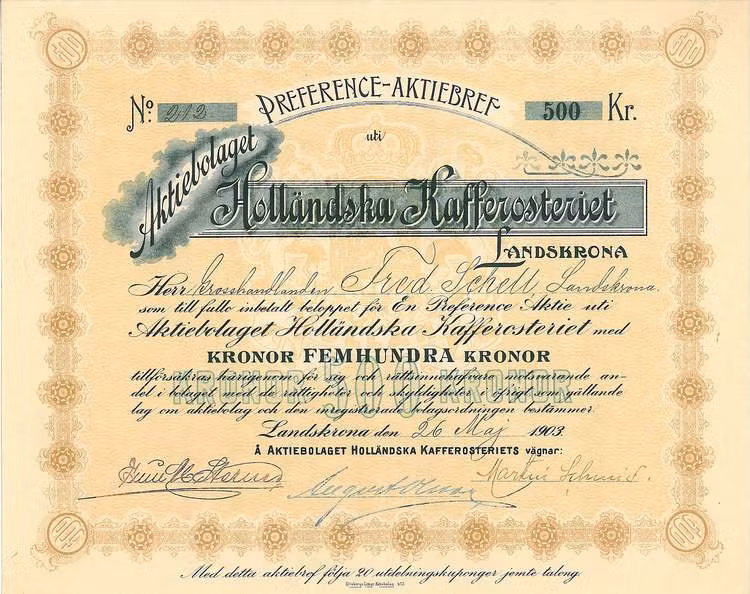 PREFERENCE-AKTIEBREF
No: 212
500 Kr.
uti
Aktiebolaget
Holländska Kafferosteriet
LANDSKRONA
Herr Grosshandlanden Fred. Schell, Landskrona.
som till fullo inbetalt beloppet för En Preference Aktie uti
Aktiebolaget Holländska Kafferosteriet med
KRONOR FEMHUNDRA KRONOR
KRONOR 500 KRONOR
tillförsäkras härigenom för sig och rättsinnehafvare motsvarande an-
del i bolaget med de rättigheter och skyldigheter i öfrigt som gällande
lag om aktiebolag och den inregistrerade bolagsordningen bestämmer.
Landskrona den 26 Maj 1903.
Å AKTIEBOLAGET HOLLÄNDSKA KAFFEROSTERIETS vägnar:
Martin
August
Med detta aktiebref följa 20 utdelningskuponger jemte talong.
500
500
500
500